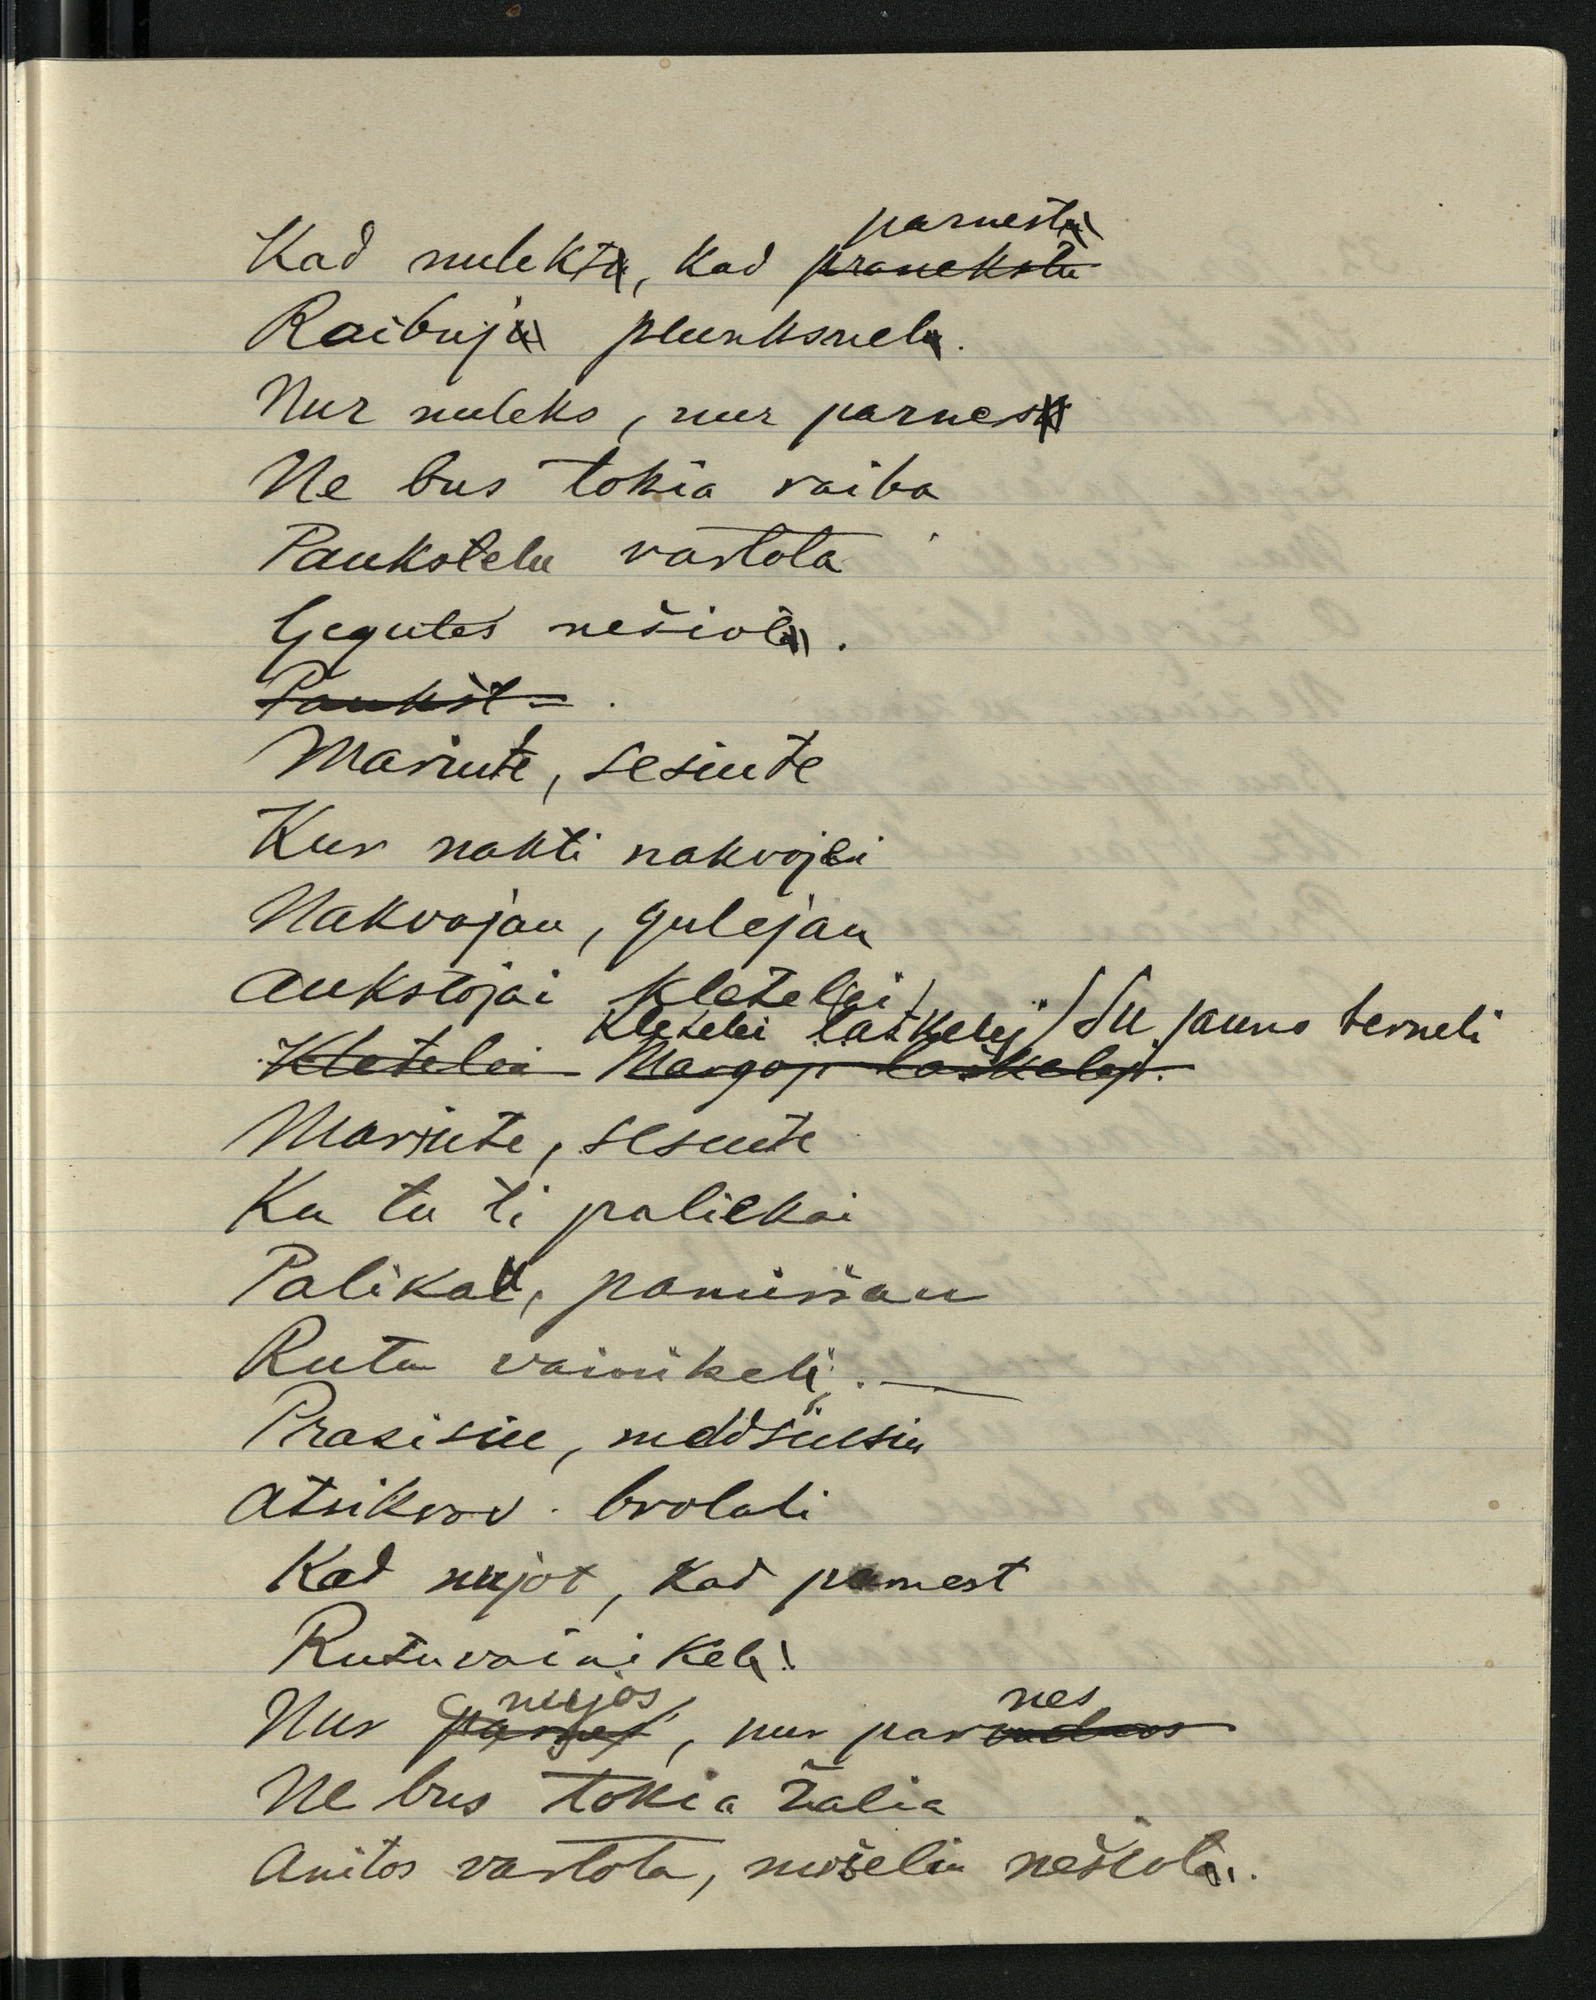 parnestu
Kad nulektu, kad pranekstu
Raibuju plunksnelu.
Nur nuleks, nur parnes
Ne bus tokia raiba
Paukstelu vartota
Gegutes nešiota.
Paukšt-
Mariute, sesiute
Kur nakti nakvojei
Nakvojau, gulejau
Aukstojai kletelei
Kletelei laškelej / Su jauno berneli
Kletelei Margoj laškelej.
Mariute, sesute
Ka tu ti paliekai
Palikau, pamiršau
Rutu vainikeli. —
Prasisiu, meldsiusiu
Atsikrov. brolati
Kad nujot, kad parnest
Rutu vainikeli.
nujos nes
Nur , nur par
Ne bus tokia žalia
Anitos vartota, mošeliu nešiota.